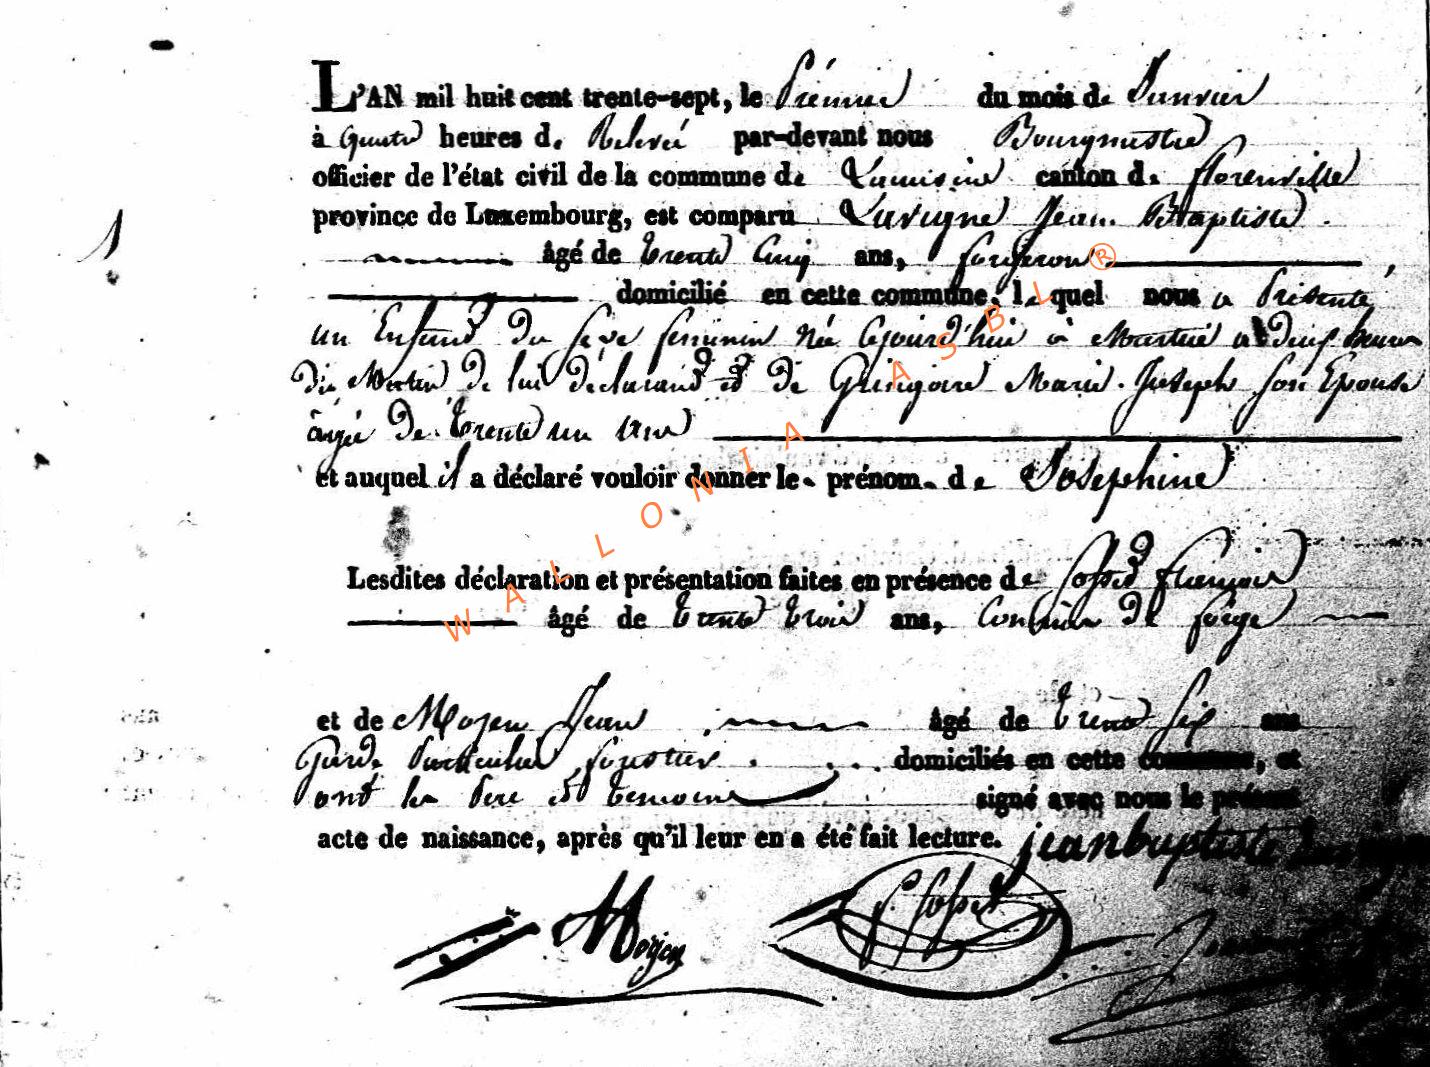 L'AN mil huit cent trente-sept, le Prémier du mois de Janvier
à quatre heures de Relevée par-devant nous Bourgmestre
officier de l'état civil de la commune de Lamisine canton de florenville
province de Luxembourg, est comparu Lavigne Jean Baptiste
1
âgé de trente Cinq ans, forgeron
domicilié en cette commune, lequel nous a Présenté
un Enfant du sexe feminin née Cejourd'hui à Martué a deux heures
du Matin de lui déclarant et de Gringoire Marie Joseph son Epouse
âgée de trente un ans
et auquel il a déclaré vouloir donner le prénom de Joséphine
Lesdites déclaration et présentation faites en présence de Sosset
âgé de trente trois ans, Commis de forge
et de Moyen Jean âgé de trente six ans
Garde Particulier forestier domiciliés en cette commune, et
ont les Pere et temoins signé avec nous le présent
acte de naissance, après qu'il leur en a été fait lecture. jeanbaptiste Lavigne
Moyen Sosset
WALLONIA ASBL ®